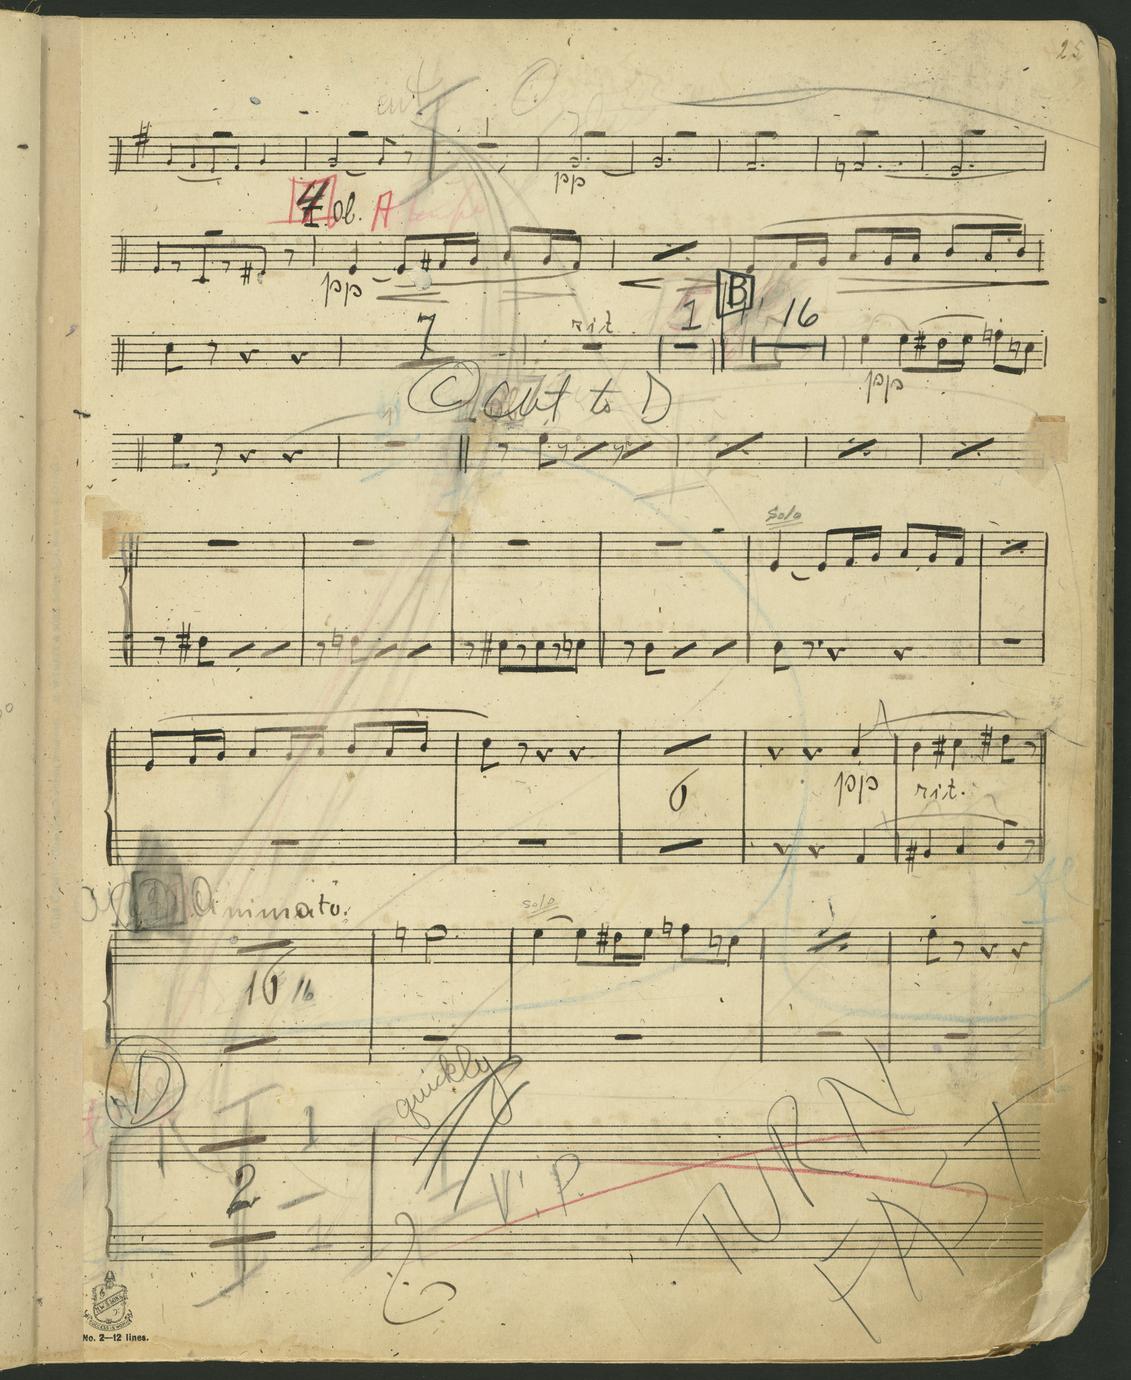 25
cut
pp
4 Ob. A tempo
pp
7 rit 1 B 16
pp
C Cut to D
Solo
6 pp rit.
Animato.
solo
16 16
D
quickly
1
2
V. P.
TURN
FAST
No. 2—12 lines.